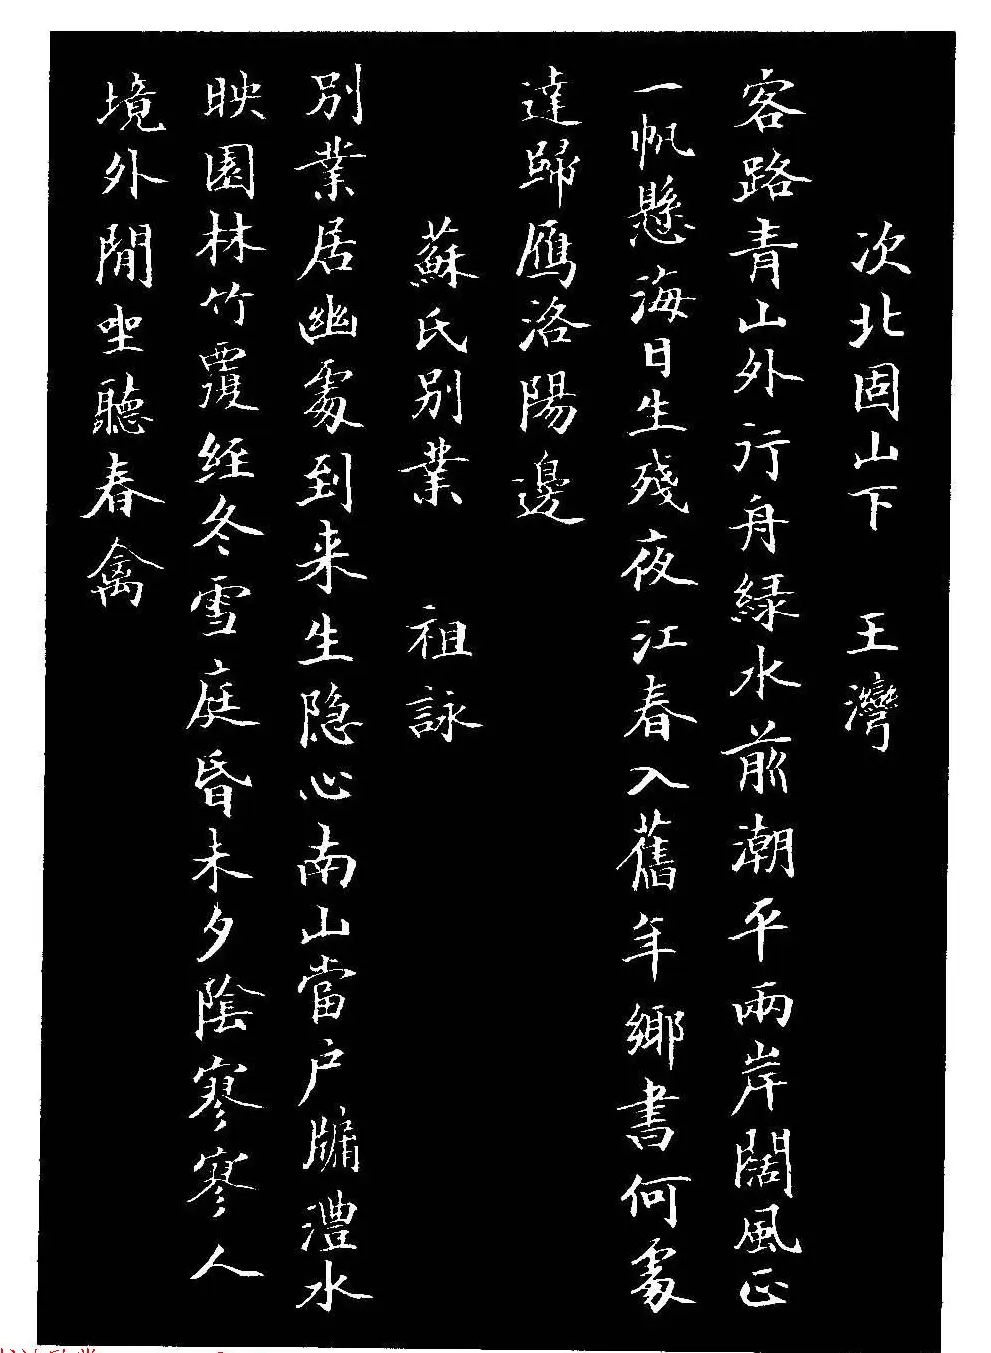 次北固山下 王灣
客路青山外行舟緑水前潮平兩岸闊風正
一帆懸海日生殘夜江春入舊年鄉書何處
達歸鴈洛陽邊
蘇氏别業 祖詠
别業居幽處到来生隐心南山當户牖澧水
映園林竹覆經冬雪庭昏未夕陰寥寥人
境外閒坐聽春禽